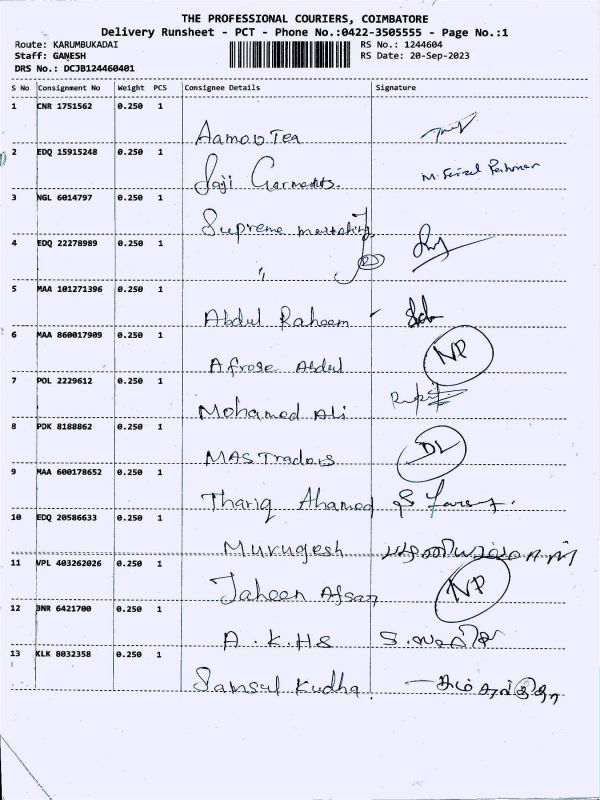 THE PROFESSIONAL COURIERS, COIMBATORE
Delivery Runsheet - PCT - Phone No.:0422-3505555 - Page No.:1
Route: KARUMBUKADAI RS No.: 1244604
Staff: GANESH RS Date: 20-Sep-2023
DRS No.: DCJB124460401
S No Consignment No Weight PCS Consignee Details Signature
1 CNR 1751562 0.250 1
Aamov Tea
2 EDQ 15915248 0.250 1
Saji Garments.
3 NGL 6014797 0.250 1
Supreme marketing
4 EDQ 22278989 0.250 1
"
5 MAA 101271396 0.250 1
Abdul Raheem
6 MAA 860017909 0.250 1
Afrose Abdul NP
7 POL 2229612 0.250 1
Mohamed Ali
8 PDK 8188862 0.250 1
MAS Traders DL
9 MAA 600178652 0.250 1
Thariq Ahamed
10 EDQ 20586633 0.250 1
Murugesh
11 VPL 403262026 0.250 1
Jaheen Afsar NP
12 BNR 6421700 0.250 1
A.K.HS
13 KLK 8032358 0.250 1
Samsul Kudha